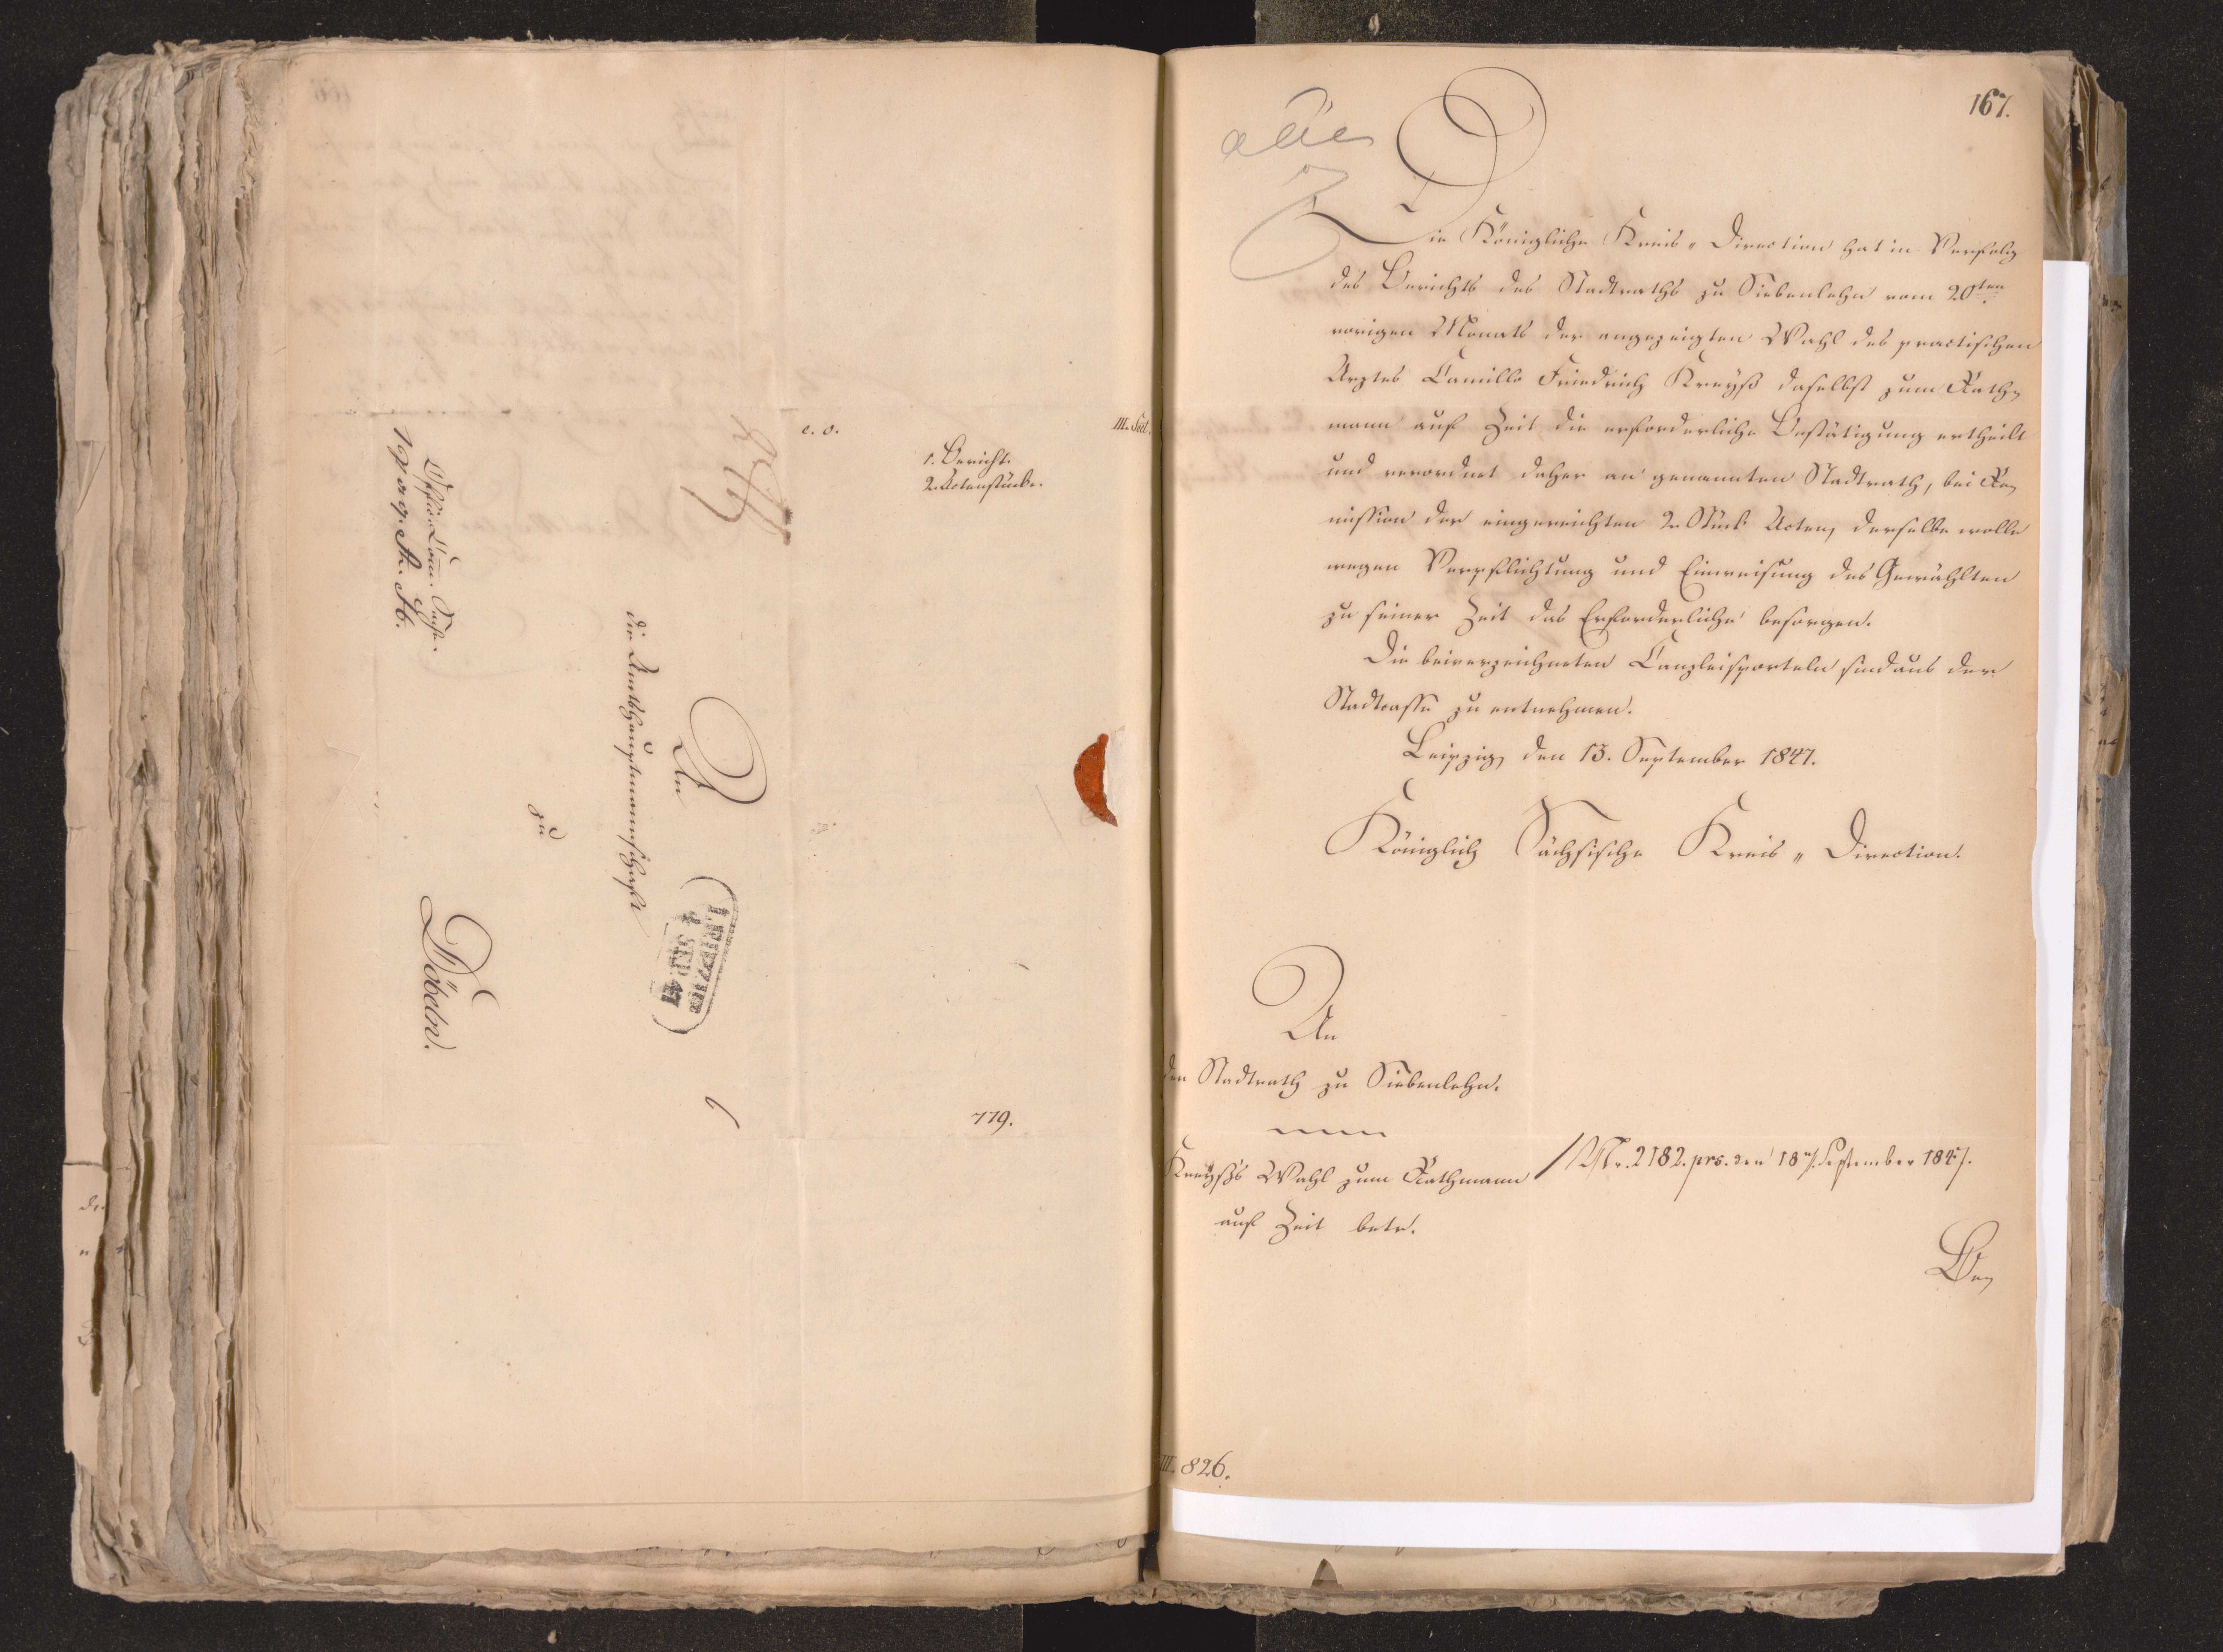 e. o.
III. Sect.
1. Bericht.
2. Actenstücke.
An
die Amtshauptmannschaft
zu
Döbeln.
LEIPZIG
779.
167.
Die Königliche Kreis-Direction hat in Verfolg
des Berichts des Stadtraths zu Siebenlehn vom 20ten
vorigen Monats der angezeigten Wahl des practischen
Arztes Camillo Friedrich Kreyß daselbst zum Rath-
mann auf Zeit die erforderliche Bestätigung ertheilt
und verordnet daher an genannten Stadtrath, bei Re-
mission der eingereichten 2. Stück Acten, derselbe wolle
wegen Verpflichtung und Einweisung des Gewählten
zu seiner Zeit das Erforderliche besorgen.
Die beiverzeichneten Canzleisporteln sind aus der
Stadtcasse zu entnehmen.
Leipzig, den 13. September 1847.
Königlich Sächsische Kreis-Direction.
An
den Stadtrath zu Siebenlehn.
Kreyß's Wahl zum Rathmann
auf Zeit betr.
Nr. 2182. prs. den 18. September 1847.
III. 826.